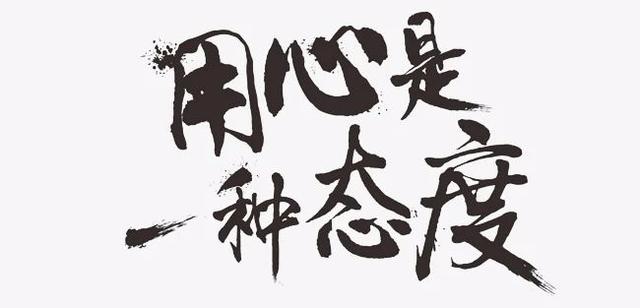 用心是
一种态度